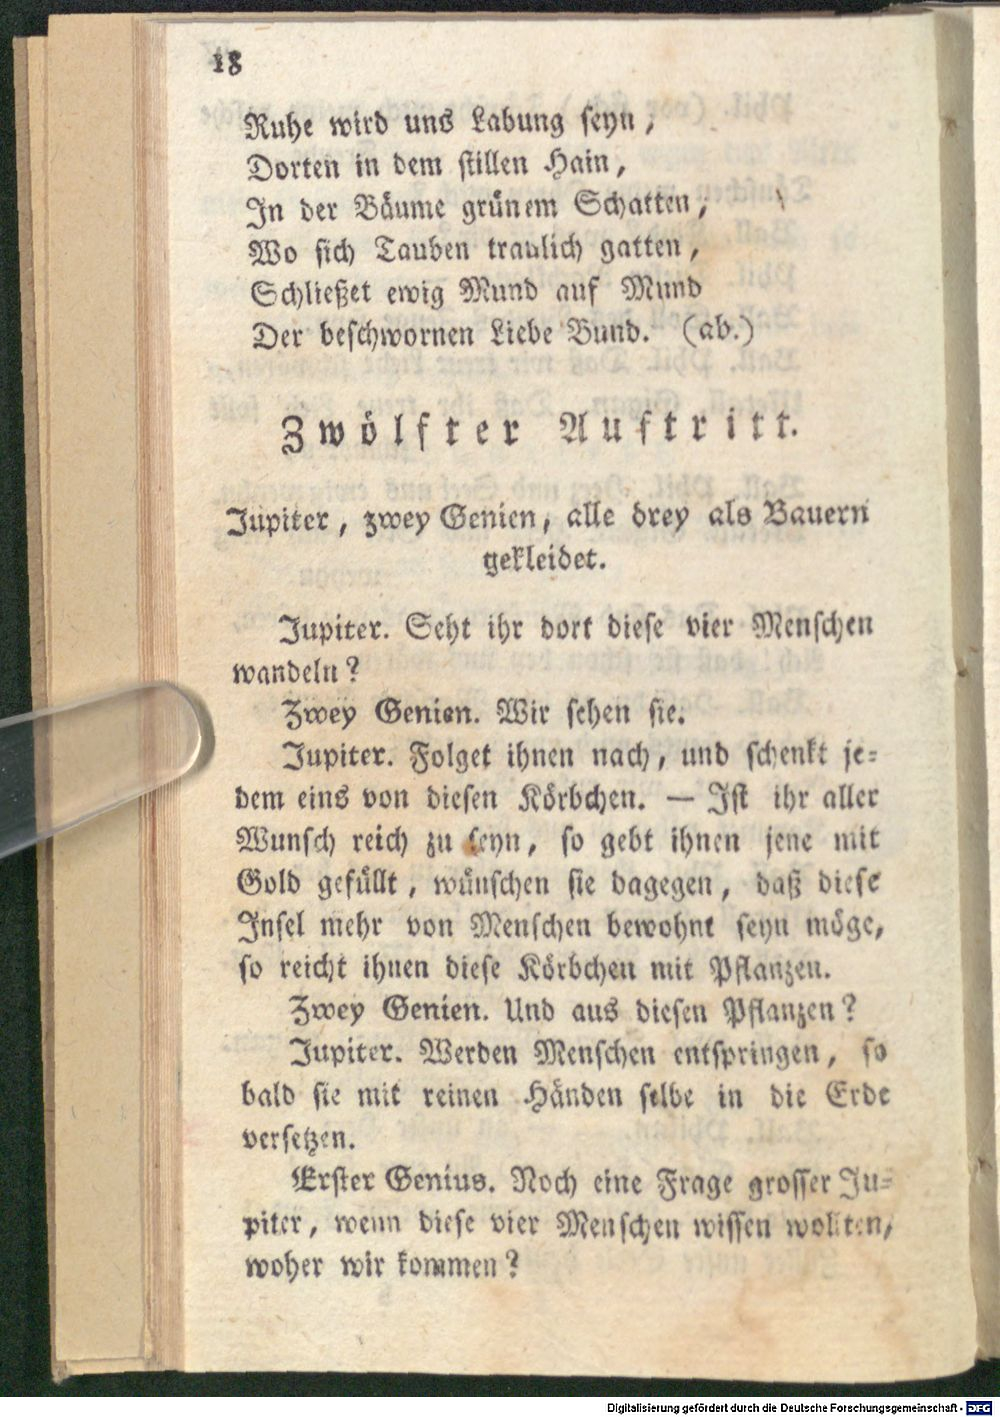 18
Ruhe wird uns Labung seyn,
Dorten in dem stillen Hain,
In der Bäume grünem Schatten,
Wo sich Tauben traulich gatten,
Schließet ewig Mund auf Mund
Der beschwornen Liebe Bund. (ab.)
Zwölfter Auftritt.
Jupiter, zwey Genien, alle drey als Bauern
gekleidet.
Jupiter. Seht ihr dort diese vier Menschen
wandeln?
Zwey Genien. Wir sehen sie.
Jupiter. Folget ihnen nach, und schenkt je=
dem eins von diesen Körbchen. — Ist ihr aller
Wunsch reich zu seyn, so gebt ihnen jene mit
Gold gefüllt, wünschen sie dagegen, daß diese
Insel mehr von Menschen bewohnt seyn möge,
so reicht ihnen diese Körbchen mit Pflanzen.
Zwey Genien. Und aus diesen Pflanzen?
Jupiter. Werden Menschen entspringen, so
bald sie mit reinen Händen selbe in die Erde
versetzen.
Erster Genius. Noch eine Frage grosser Ju=
piter, wenn diese vier Menschen wissen wollten,
woher wir kommen?
Digitalisierung gefördert durch die Deutsche Forschungsgemeinschaft - DFG